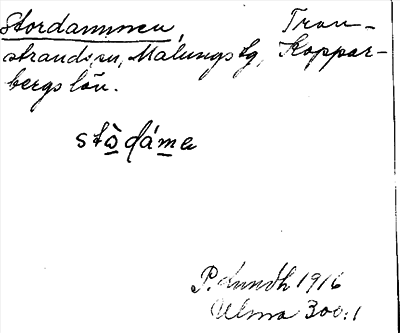 Stordammen, Tran-
strands sn, Malungs tg, Koppar-
bergs län.
stòdámɐ
P. Lundh 1916
Ulma 300:1